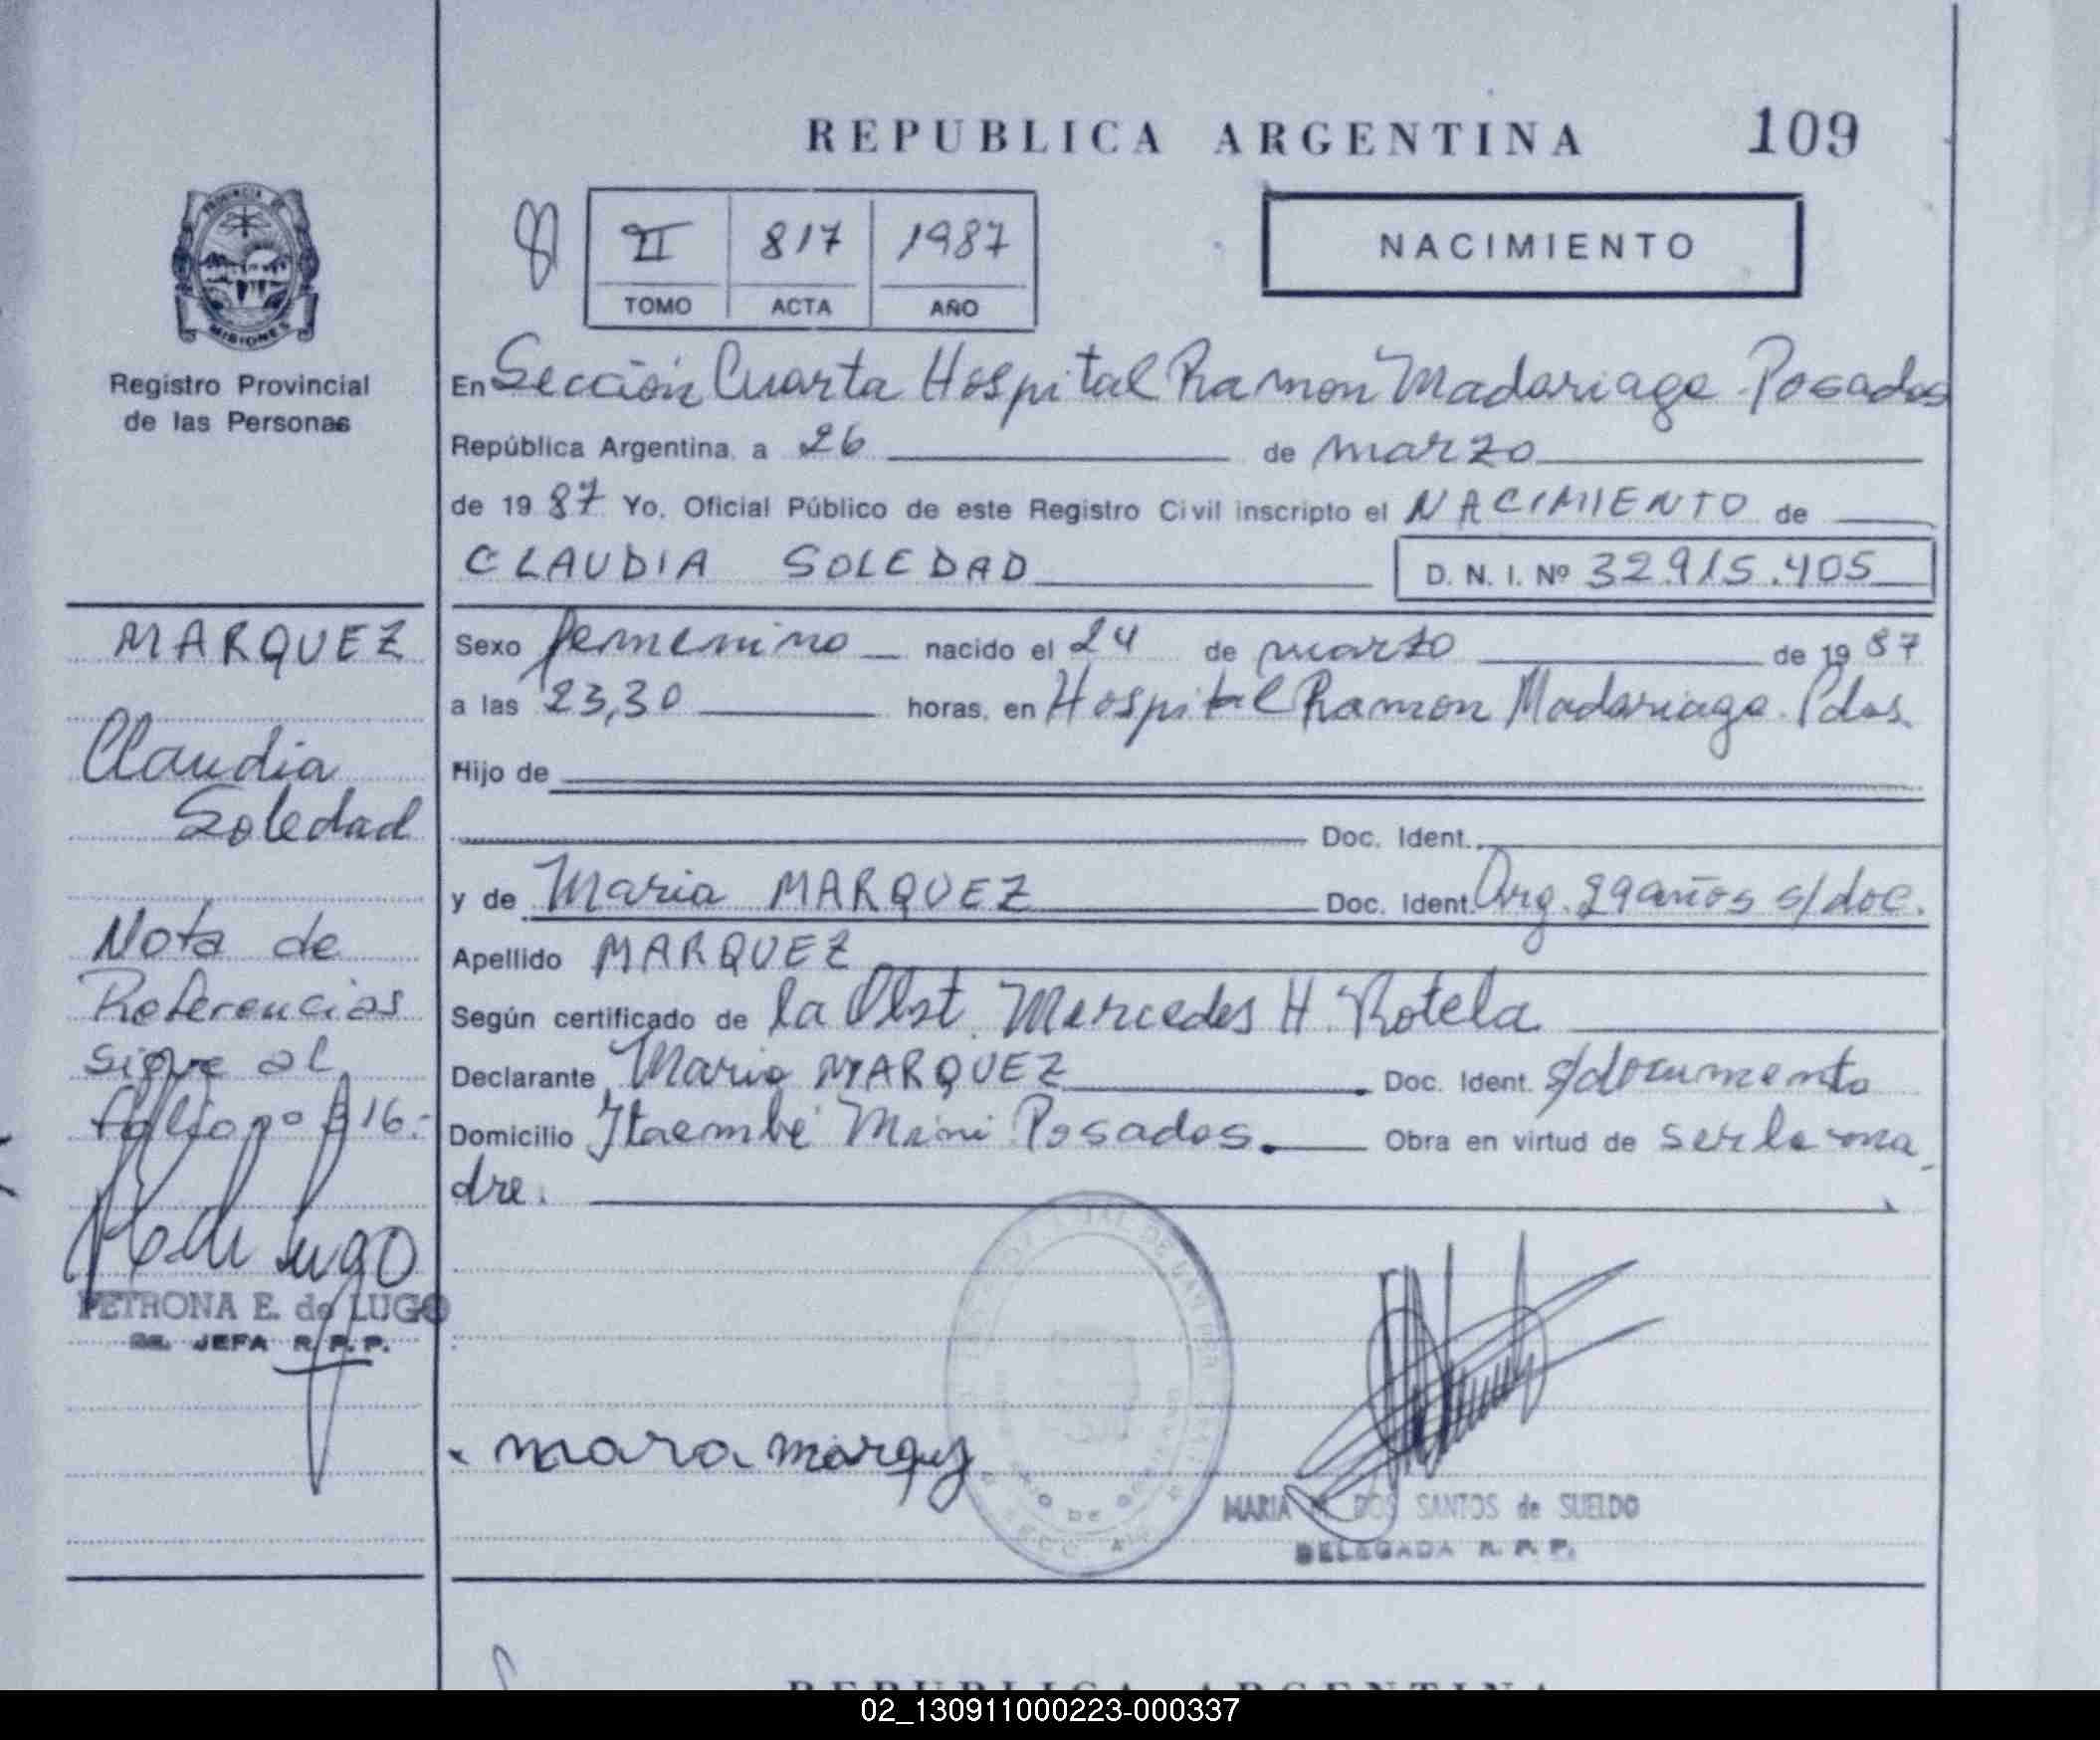 REPUBLICA ARGENTINA 109
II 817 1987
TOMO ACTA AÑO
NACIMIENTO
PROVINCIA DE
MISIONES
Registro Provincial
de las Personas
En Sección Cuarta Hospital Ramon Madariaga Posadas
República Argentina, a 26 de marzo
de 1987 Yo, Oficial Público de este Registro Civil inscripto el NACIMIENTO de
CLAUDIA SOLEDAD D. N. I. Nº 32.915.405
Sexo femenino nacido el 24 de marzo de 1987
a las 23,30 horas, en Hospital Ramon Madariaga. Pdas.
Hijo de
Doc. Ident.
y de Maria MARQUEZ Doc. Ident. Arg. 29 años s/doc.
Apellido MARQUEZ
Según certificado de la Obst. Mercedes H. Rotela
Declarante Maria MARQUEZ Doc. Ident. s/documento
Domicilio Itaembé Mini Posadas. Obra en virtud de ser la ma
dre.
mara marquez
MARIA DOS SANTOS de SUELDO
DELEGADA R. P. P.
MARQUEZ
Claudia
Soledad
Nota de
Referencias
sigue al
folio nº 116.-
de Lugo
PETRONA E. de LUGO
JEFA R. P. P.
REPUBLICA ARGENTINA
02_130911000223-000337